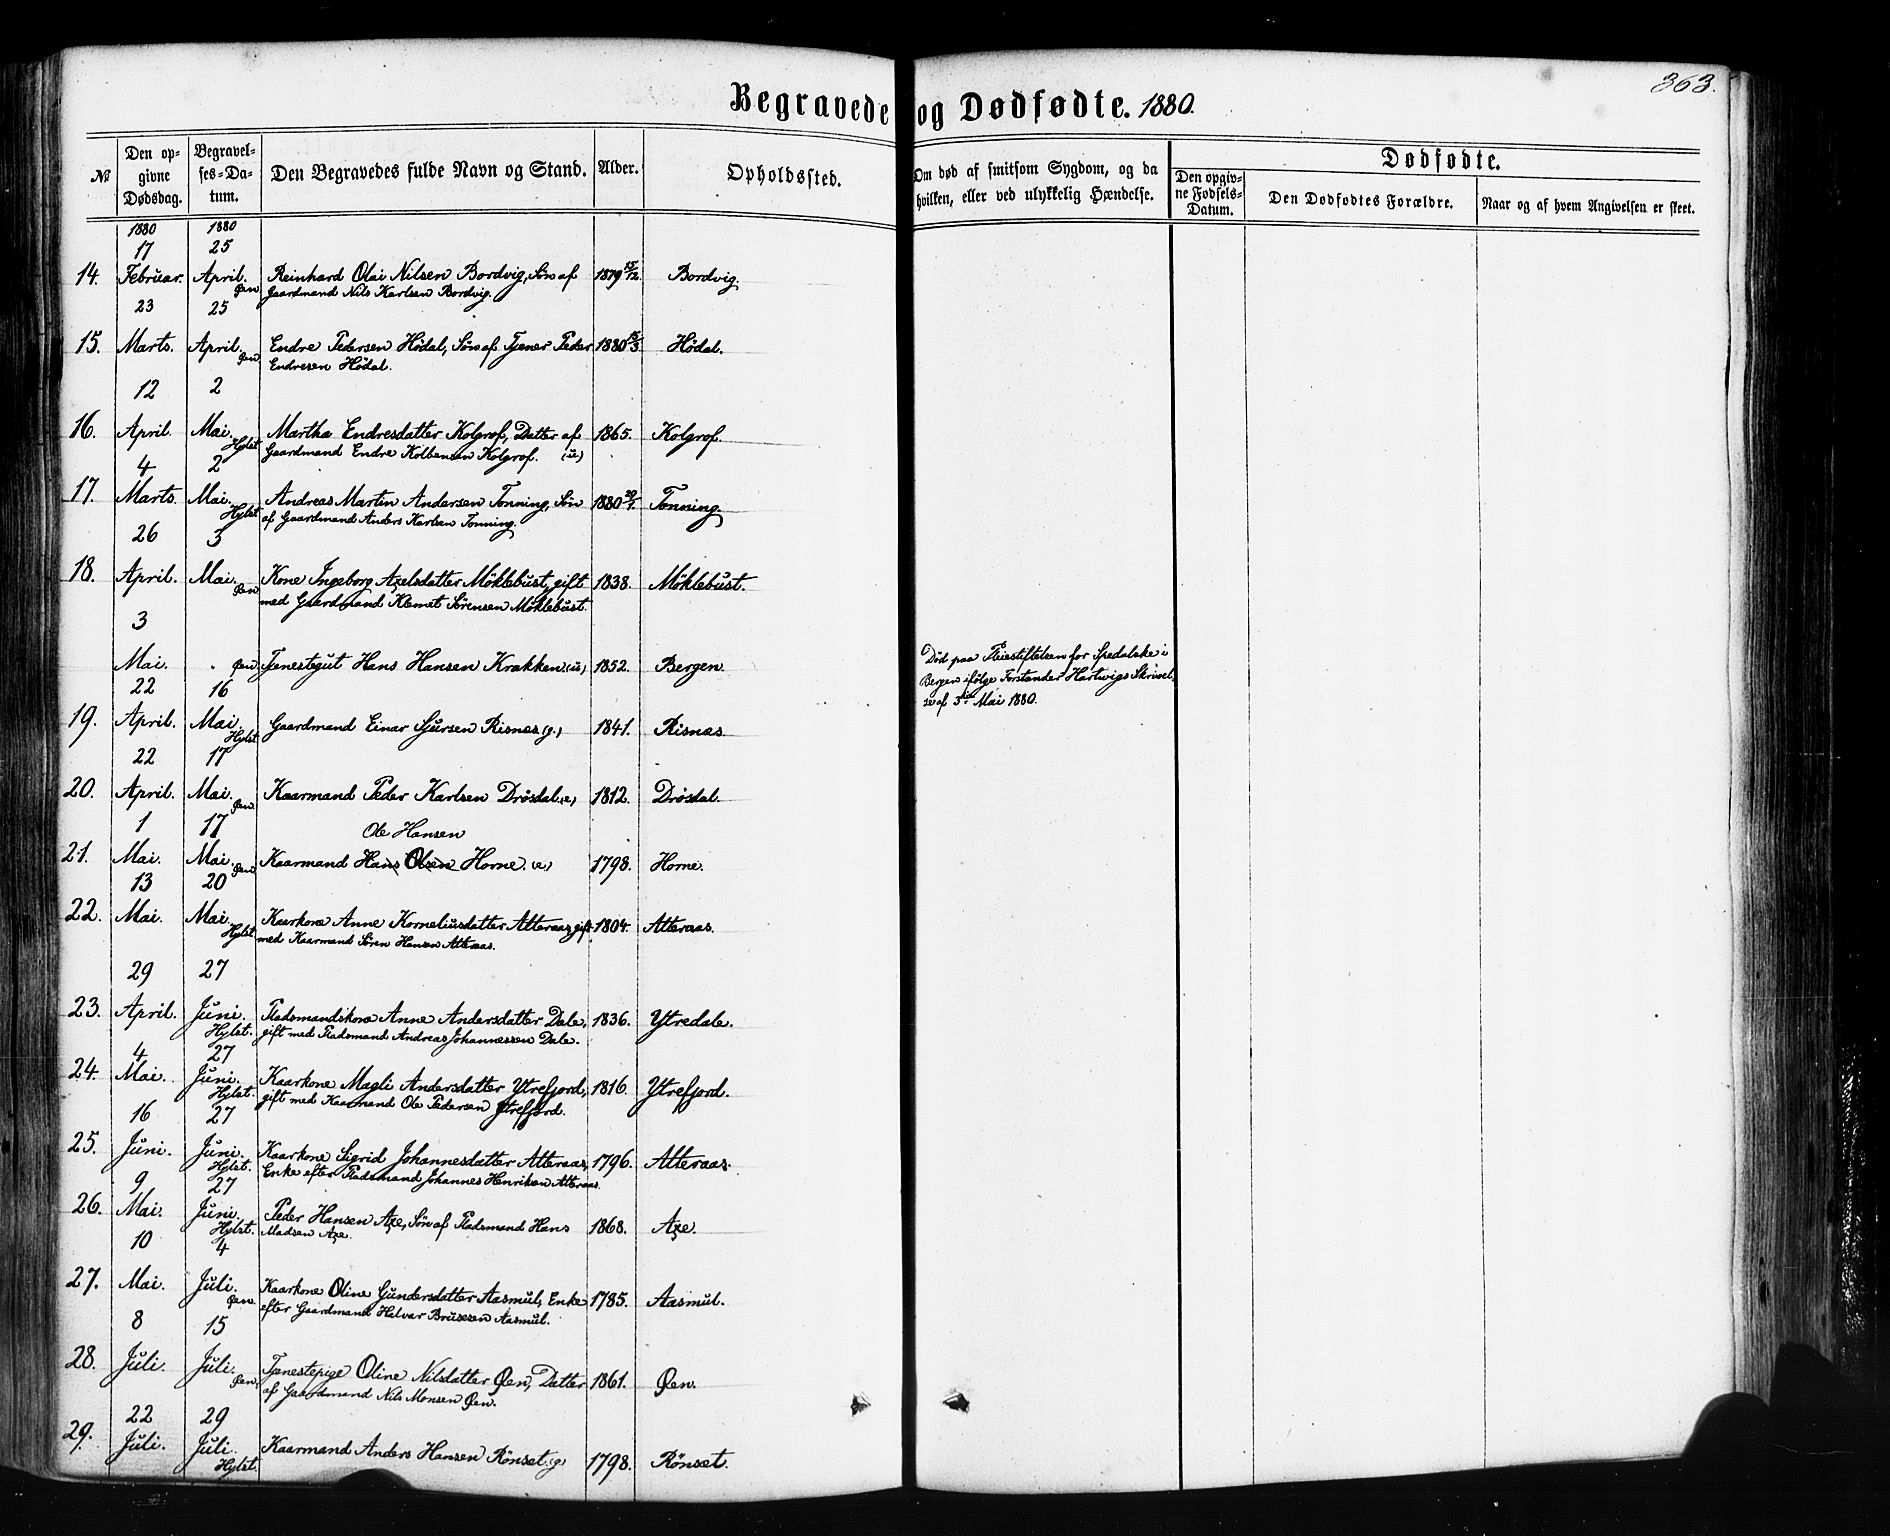 363.
Begravede og Dødfødte. 1880.
№
Den opgivne Dødsdag.
Begravelses-Datum.
Den Begravedes fulde Navn og Stand.
Alder.
Opholdssted.
Om død af smitsom Sygdom, og da hvilken, eller ved ulykkelig Hændelse.
Dødfødte.
Den opgivne Fødsels-Datum.
Den Dødfødtes Forældre.
Naar og af hvem Angivelsen er skeet.
1880 1880
17 25
14. Februar. April. Øen Reinhard Olai Nilsen Bordvig, Søn af 1879 Bordvig.
Gaardmand Nils Karlsen Bordvig.
23 25
15. Marts. April. Øen Endre Pedersen Hødal, Søn af Tjener Peder 1880 Hødal.
Endresen Hødal.
12 2
16. April. Mai. Hylst Martha Endresdatter Kolgrof, Datter af 1865. Kolgrof
Gaardmand Endre Kolbensen Kolgrof. (u)
4 2
17. Marts. Mai. Hylst Andreas Martin Andersen Tonning, Søn 1880 Tonning.
af Gaardmand Anders Karlsen Tonning.
26 3
18. April. Mai. Øen Kone Ingeborg Axelsdatter Møklebust, gift 1838. Møklebust.
med Gaardmand Klemet Sørensen Møklebust.
3
Mai. Øen Tjenestegut Hans Hansen Krakken (u) 1852. Bergen.
Død paa Pleiestiftelsen for Spedalske i
Bergen ifølge Forstander Hartwigs Skrivel,
se af 5te Mai 1880.
22 16
19. April. Mai. Hylst Gaardmand Einar Sjursen Risnes (g.) 1841. Risnæs
22 17
20. April. Mai. Øen Kaarmand Peder Karlsen Drøsdal (e) 1812. Drøsdal.
1 17 Ole Hansen
21. Mai. Mai. Øen Kaarmand Hans Olsen Horne. (e) 1798. Horne.
13 20
22. Mai. Mai. Hylst Kaarkone Anne Korneliusdatter Atteraas, gift 1804. Atteraas.
med Kaarmand Søren Hansen Atteraas.
29 27
23. April. Juni. Hylst. Pladsmandskone Anne Andersdatter Dale, 1836. Ytredale.
gift med Pladsmand Andreas Johannessen Dale.
4 27
24. Mai. Juni. Hylst. Kaarkone Magli Andersdatter Ytrefjord, 1816. Ytrefjord.
gift med Kaarmand Ole Pedersen Ytrefjord.
16 27
25. Juni. Juni. Hylst. Kaarkone Sigrid Johannesdatter Atteraas, 1796. Atteraas.
Enke efter Pladsmand Johannes Henriksen Atteraas.
9 27
26. Mai. Juni. Hylst. Peder Hansen Axe, Søn af Pladsmand Hans 1868. Axe.
Madsen Axe.
10 4
27. Mai. Juli. Øen. Kaarkone Oline Gundersdatter Aasmul, Enke 1785. Aasmul.
efter Gaardmand Halvar Brusesen Aasmul.
8 15
28. Juli. Juli. Øen. Tjenestepige Oline Nilsdatter Øen, Datter 1861. Øen.
af Gaardmand Nils Monsen Øen.
22 29
29. Juli. Juli. Hylst. Kaarmand Anders Hansen Rønset. (g) 1798. Rønset.